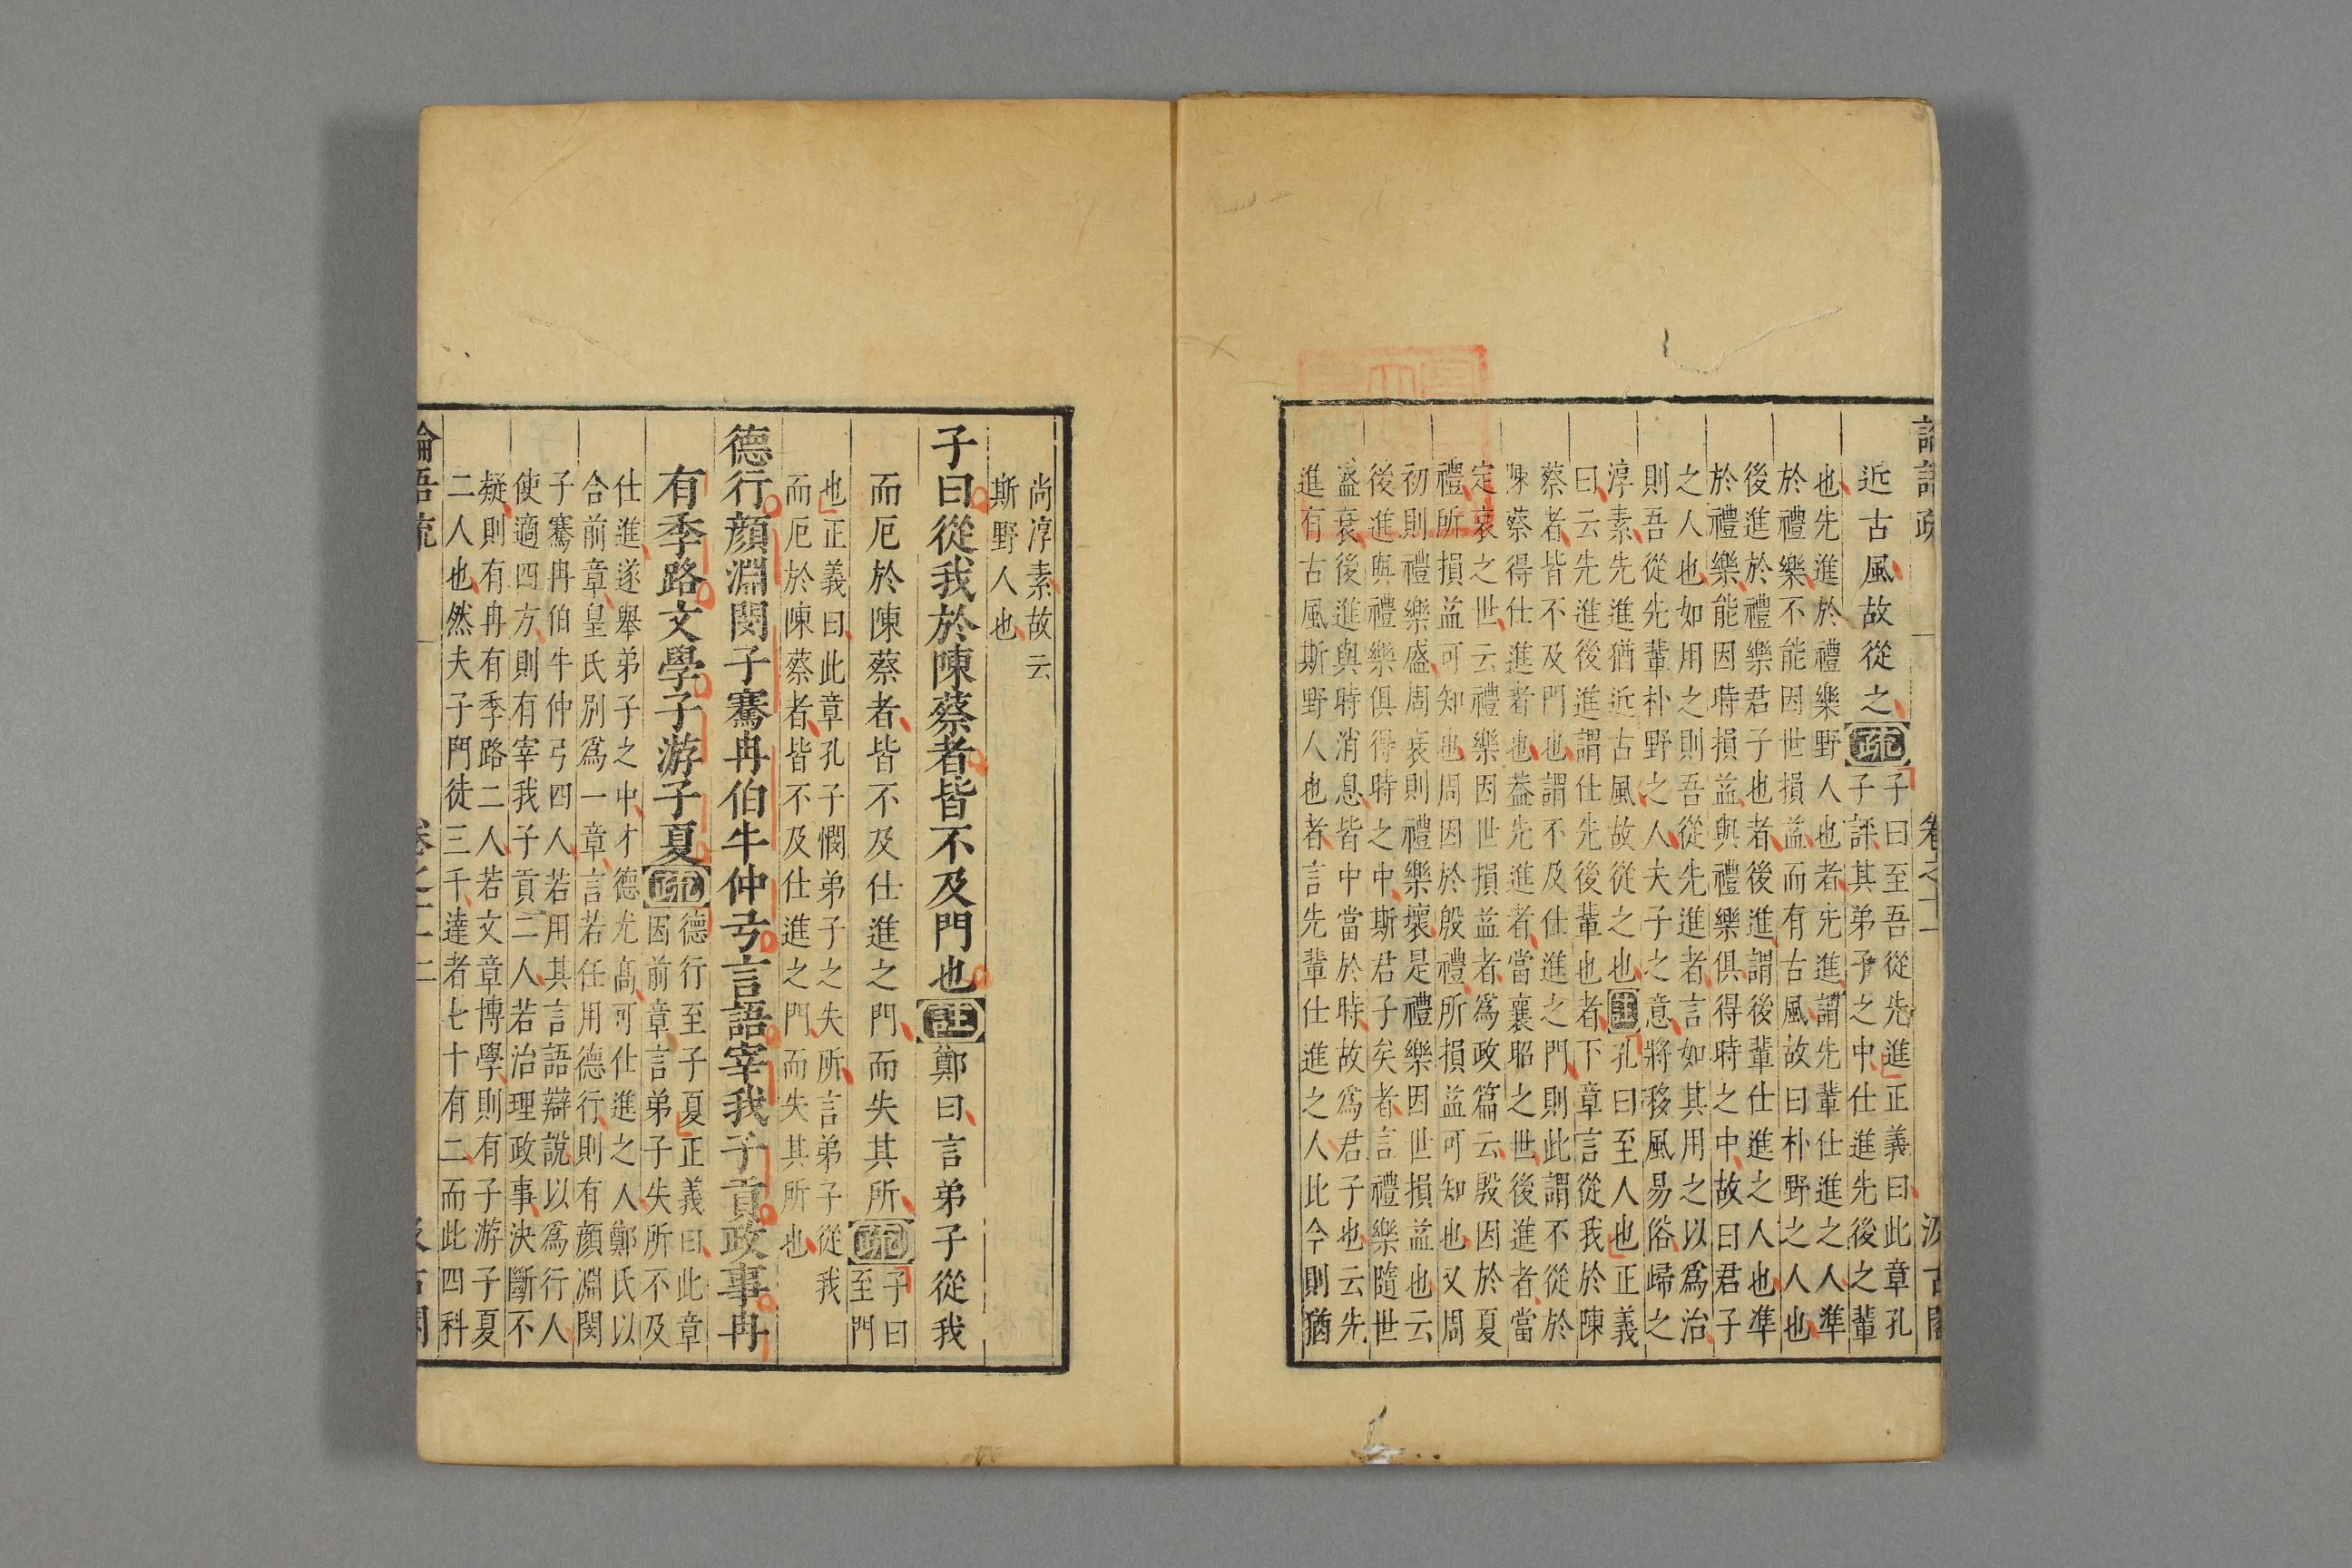 論語疏 卷之十一 汲古閣
近古風故從之疏子曰至吾從先進正義曰此章孔
子評其弟子之中仕進先後之輩
也先進於禮樂野人也者先進謂先輩仕進之人準
於禮樂不能因世損益而有古風故曰朴野之人也
後進於禮樂君子也者後進謂後輩仕進之人也準
於禮樂能因時損益與禮樂俱得時之中故曰君子
之人也如用之則吾從先進者言如其用之以爲治
則吾從先輩朴野之人夫子之意將移風易俗歸之
淳素先進猶近古風故從之也註孔曰至人也正義
曰云先進後進謂仕先後輩也者下章言從我於陳
蔡者皆不及門也謂不及仕進之門則此謂不從於
陳蔡得仕進者也葢先進者當襄昭之世後進者當
定哀之世云禮樂因世損益者爲政篇云殷因於夏
禮所損益可知也周因於殷禮所損益可知也又周
初則禮樂盛周衰則禮樂壞是禮樂因世損益也云
後進與禮樂俱得時之中斯君子矣者言禮樂隨世
盛衰後進與時消息皆中當於時故爲君子也云先
進有古風斯野人也者言先輩仕進之人比今則猶
尚淳素故云
斯野人也
子曰從我於陳蔡者皆不及門也註鄭曰言弟子從我
而厄於陳蔡者皆不及仕進之門而失其所疏子曰
至門
也正義曰此章孔子憫弟子之失所言弟子從我
而厄於陳蔡者皆不及仕進之門而失其所也
德行顏淵閔子騫冉伯牛仲弓言語宰我子貢政事冉
有季路文學子游子夏疏德行至子夏正義曰此章
因前章言弟子失所不及
仕進遂舉弟子之中才德尤高可仕進之人鄭氏以
合前章皇氏別爲一章言若任用德行則有顏淵閔
子騫冉伯牛仲弓四人若用其言語辯說以爲行人
使適四方則有宰我子貢二人若治理政事決斷不
疑則有冉有季路二人若文章博學則有子游子夏
二人也然夫子門徒三千達者七十有二而此四科
論語疏 卷之十一 二 汲古閣